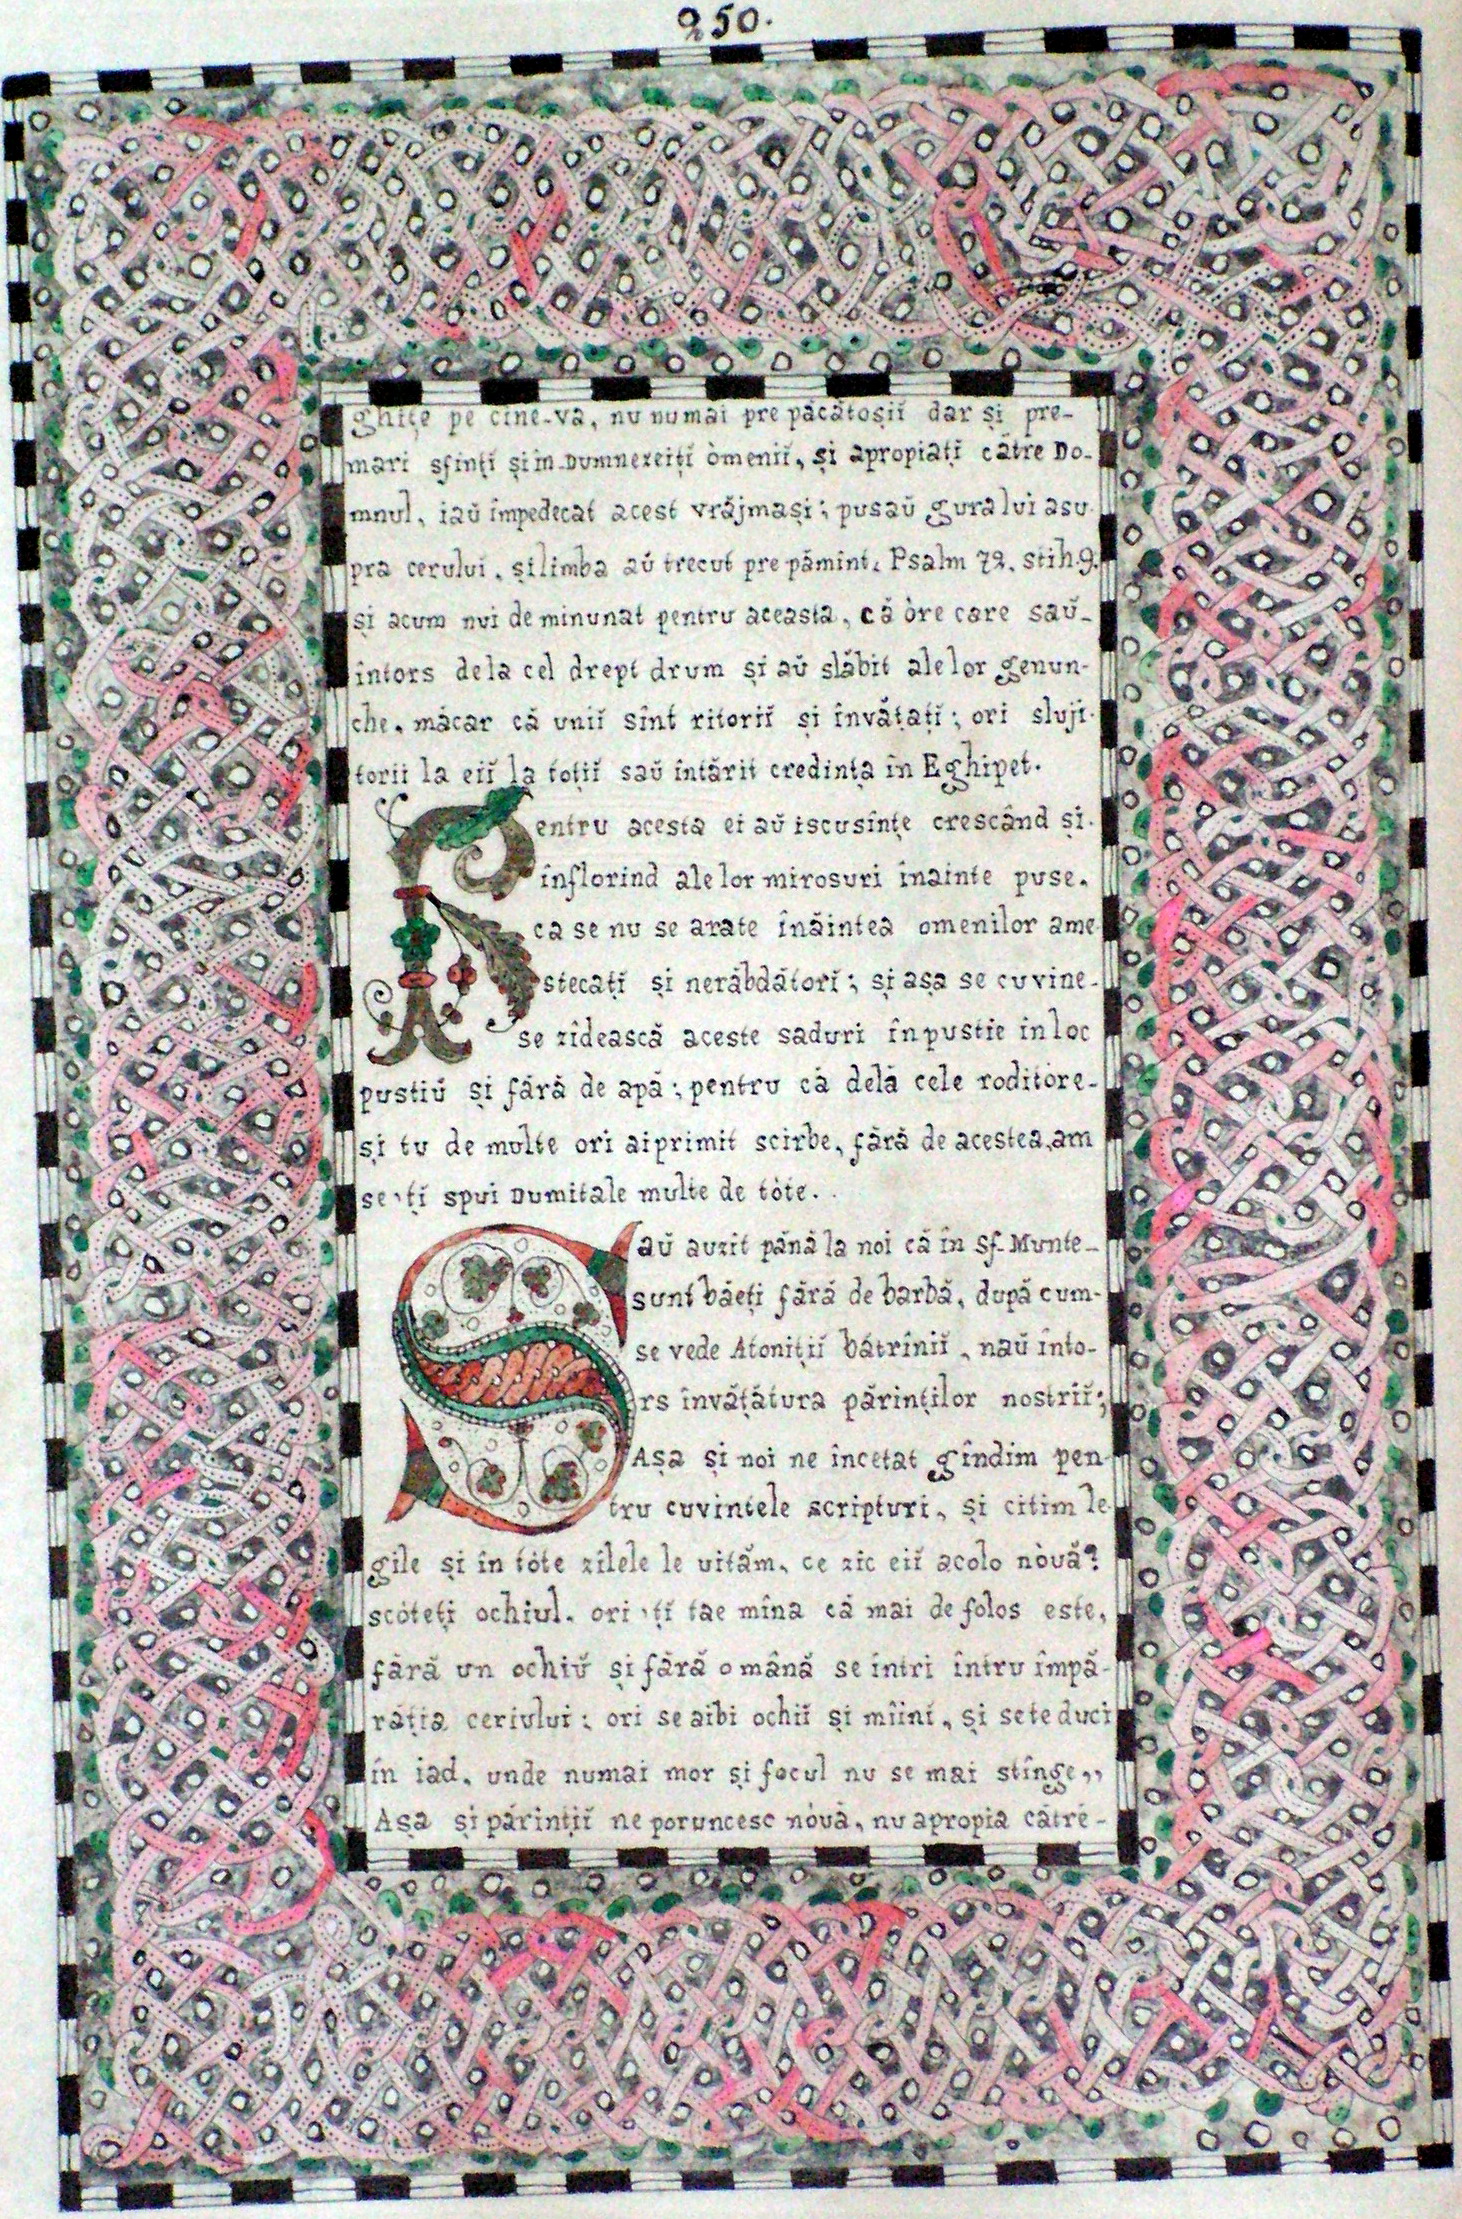 250.
ghițe pe cine-va, nu numai pre păcătoșii dar și pre-
mari sfinți și în-Dumnezeiți òmenii, și apropiați către Do-
mnul, iaŭ împedecat acest vrăjmași; pusaŭ gura lui asu-
pra cerului, și limba aŭ trecut pre pămînt, Psalm 72. stih.9.
și acum nui de minunat pentru aceasta, că òre care saŭ-
întors dela cel drept drum și aŭ slăbit ale lor genun-
che, măcar că unii sînt ritorii și învățați; ori sluji-
torii la eii la toții saŭ întărit credința în Eghipet.
Pentru acesta ei aŭ iscusințe crescând și-
inflorind ale lor mirosuri înainte puse,
ca se nu se arate înăintea omenilor ame-
stecați și nerăbdători; și așa se cuvine-
se zîdească aceste saduri în pustie in loc
pustiŭ și fără de apă; pentru că delă cele roditòre-
și tu de multe ori ai primit scirbe, fără de acestea, am
se'ți spui Dumitale multe de tòte.
Saŭ auzit până la noi că în Sf. Munte-
sunt băeți fără de barbă, după cum-
se vede Atoniții bătrînii, naŭ înto-
rs învățătura părinților nostrii;
Așa și noi ne încetat gîndim pen-
tru cuvintele scripturi, și citim le-
gile și în tòte zîlele le uităm, ce zic eii acolo nòuă?
scòteți ochiul, ori 'ți tae mîna că mai de folos este,
fără un ochiŭ și fără o mână se intri întru împă-
răția ceriului; ori se aibi ochii și mîini, și se te duci
în iad, unde numai mor și focul nu se mai stînge,,
Așa și părinții ne poruncesc nòuă, nu apropia cătrĕ-